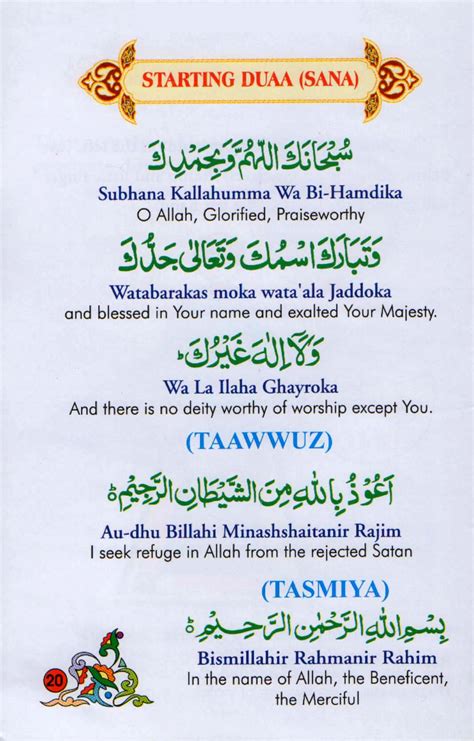 STARTING DUAA (SANA)
سُبْحَانَكَ اللّٰهُمَّ وَبِحَمْدِكَ
Subhana Kallahumma Wa Bi-Hamdika
O Allah, Glorified, Praiseworthy
وَتَبَارَكَ اسْمُكَ وَتَعَالٰى جَدُّكَ
Watabarakas moka wata'ala Jaddoka
and blessed in Your name and exalted Your Majesty.
وَلَا اِلٰهَ غَيْرُكَ ط
Wa La Ilaha Ghayroka
And there is no deity worthy of worship except You.
(TAAWWUZ)
اَعُوْذُ بِاللّٰهِ مِنَ الشَّيْطَانِ الرَّجِيْمِ ط
Au-dhu Billahi Minashshaitanir Rajim
I seek refuge in Allah from the rejected Satan
(TASMIYA)
بِسْمِ اللّٰهِ الرَّحْمٰنِ الرَّحِيْمِ ط
Bismillahir Rahmanir Rahim
In the name of Allah, the Beneficent,
the Merciful
20